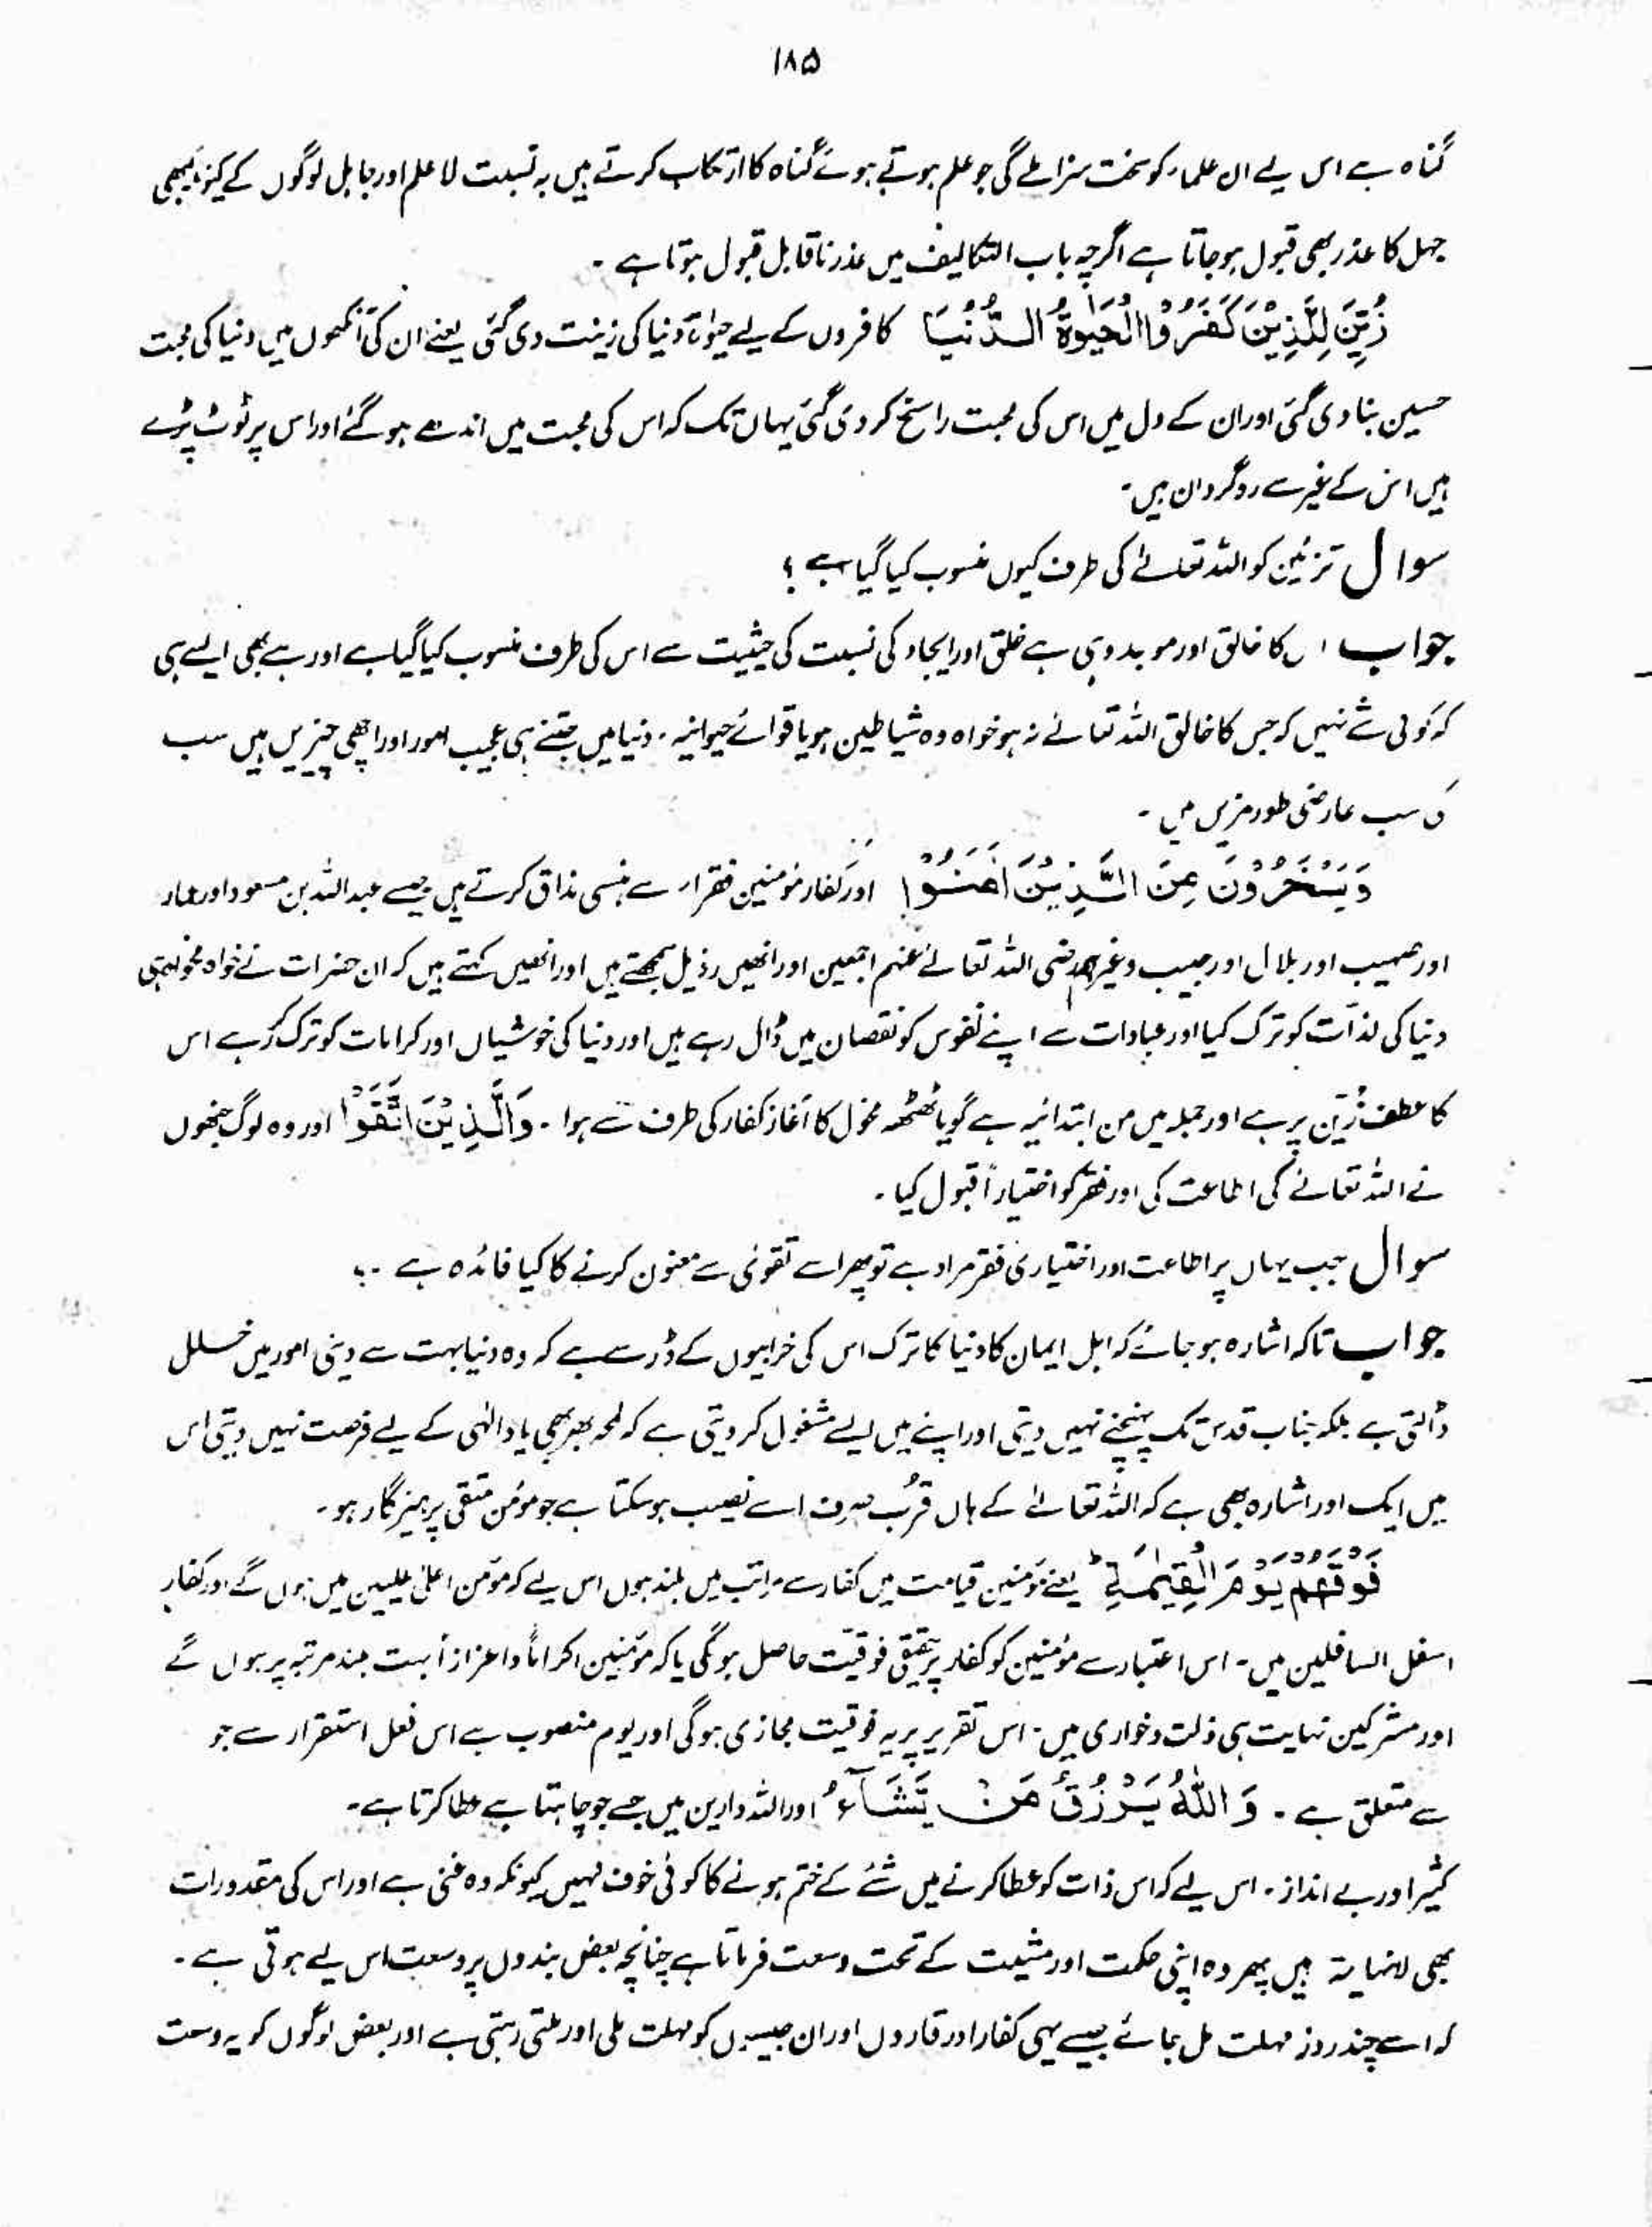 ۱۸۵
گناہ ہے اس لیے ان علماء کو سخت سزا ملے گی جو علم ہوتے ہوئے گناہ کا ارتکاب کرتے ہیں بہ نسبت لا علم اور جاہل لوگوں کے کیونکہ کبھی
جہل کا عذر بھی قبول ہو جاتا ہے اگرچہ باب التکالیف میں عذر ناقابل قبول ہوتا ہے ۔
زُیِّنَ لِلَّذِیْنَ كَفَرُوا الْحَیٰوةُ الدُّنْیَا کافروں کے لیے حیوٰۃ دنیا کی زینت دی گئی یعنے ان کی آنکھوں میں دنیا کی محبت
حسین بنا دی گئی اور ان کے دل میں اس کی محبت راسخ کر دی گئی یہاں تک کہ اس کی محبت میں اندھے ہو گئے اور اس پر ٹوٹ پڑے
ہیں اس کے غیر سے روگردان ہیں۔
سوال تزئین کو اللہ تعالےٰ کی طرف کیوں منسوب کیا گیا ہے ؟
جواب اس کا خالق اور موجد وہی ہے خلق اور ایجاد کی نسبت کی حیثیت سے اس کی طرف منسوب کیا گیا ہے اور ہے بھی ایسے ہی
کہ کوئی شے نہیں کہ جس کا خالق اللہ تعالےٰ نہ ہو خواہ وہ شیاطین ہو یا قوائے حیوانیہ ۔ دنیا میں جتنے ہی عجیب امور اور اچھی چیزیں ہیں سب
کی سب عارضی طور مزین ہیں ۔
وَ یَسْخَرُوْنَ مِنَ الَّذِیْنَ اٰمَنُوْا اور کفار مؤمنین فقراء سے ہنسی مذاق کرتے ہیں جیسے عبداللہ بن مسعود اور عمار
اور صہیب اور بلال اور حبیب وغیرہم رضی اللہ تعالےٰ عنہم اجمعین اور انھیں رذیل سمجھتے ہیں اور انھیں کہتے ہیں کہ ان حضرات نے خواہ مخواہ ہی
دنیا کی لذات کو ترک کیا اور عبادات سے اپنے نفوس کو نقصان میں ڈال رہے ہیں اور دنیا کی خوشیاں اور کرامات کو ترک کر رہے اس
کا عطف زُیِّن پر ہے اور جملہ میں من ابتدائیہ ہے گویا ٹھٹھہ مخول کا آغاز کفار کی طرف سے ہوا ۔ وَالَّذِیْنَ اتَّقَوْا اور وہ لوگ جنھوں
نے اللہ تعالےٰ کی اطاعت کی اور فقر کو اختیاراً قبول کیا ۔
سوال جب یہاں پر اطاعت اور اختیاری فقر مراد ہے تو پھر اسے تقویٰ سے معنون کرنے کا کیا فائدہ ہے ؟
جواب تاکہ اشارہ ہو جائے کہ اہل ایمان کا دنیا کا ترک اس کی خرابیوں کے ڈر سے ہے کہ وہ دنیا بہت سے دینی امور میں خلل
ڈالتی ہے بلکہ جناب قدس تک پہنچنے نہیں دیتی اور اپنے میں ایسے مشغول کر دیتی ہے کہ لمحہ بھر بھی یاد الٰہی کے لیے فرصت نہیں دیتی اس
میں ایک اور اشارہ بھی ہے کہ اللہ تعالےٰ کے ہاں قُرب صرف اسے نصیب ہو سکتا ہے جو مؤمن متقی پرہیزگار ہو ۔
فَوْقَهُمْ یَوْمَ الْقِیٰمَةِ ؕ یعنے مؤمنین قیامت میں کفار سے مراتب میں بلند ہوں اس لیے کہ مؤمن اعلیٰ علیین میں ہوں گے اور کفار
اسفل السافلین میں ۔ اس اعتبار سے مؤمنین کو کفار پر حقیقی فوقیت حاصل ہو گی یا کہ مؤمنین اکراماً و اعزازاً بہت بلند مرتبہ پر ہوں گے
اور مشرکین نہایت ہی ذلت و خواری میں ۔ اس تقریر پر یہ فوقیت مجازی ہو گی اور یوم منصوب ہے اس فعل استقرار سے جو
سے متعلق ہے ۔ وَاللّٰهُ یَرْزُقُ مَنْ یَّشَآءُ اور اللہ دارین میں جسے جو چاہتا ہے عطا کرتا ہے۔
کثیر اور بے انداز ۔ اس لیے کہ اس ذات کو عطا کرنے میں شئے کے ختم ہونے کا کوئی خوف نہیں کیونکہ وہ غنی ہے اور اس کی مقدورات
بھی لانہایۃ ہیں پھر وہ اپنی حکمت اور مشیت کے تحت وسعت فرماتا ہے چنانچہ بعض بندوں پر وسعت اس لیے ہوتی ہے ۔
کہ اسے چند روز مہلت مل جائے جیسے یہی کفار اور قارون اور ان جیسوں کو مہلت ملی اور ملتی رہتی ہے اور بعض لوگوں کو یہ وسعت